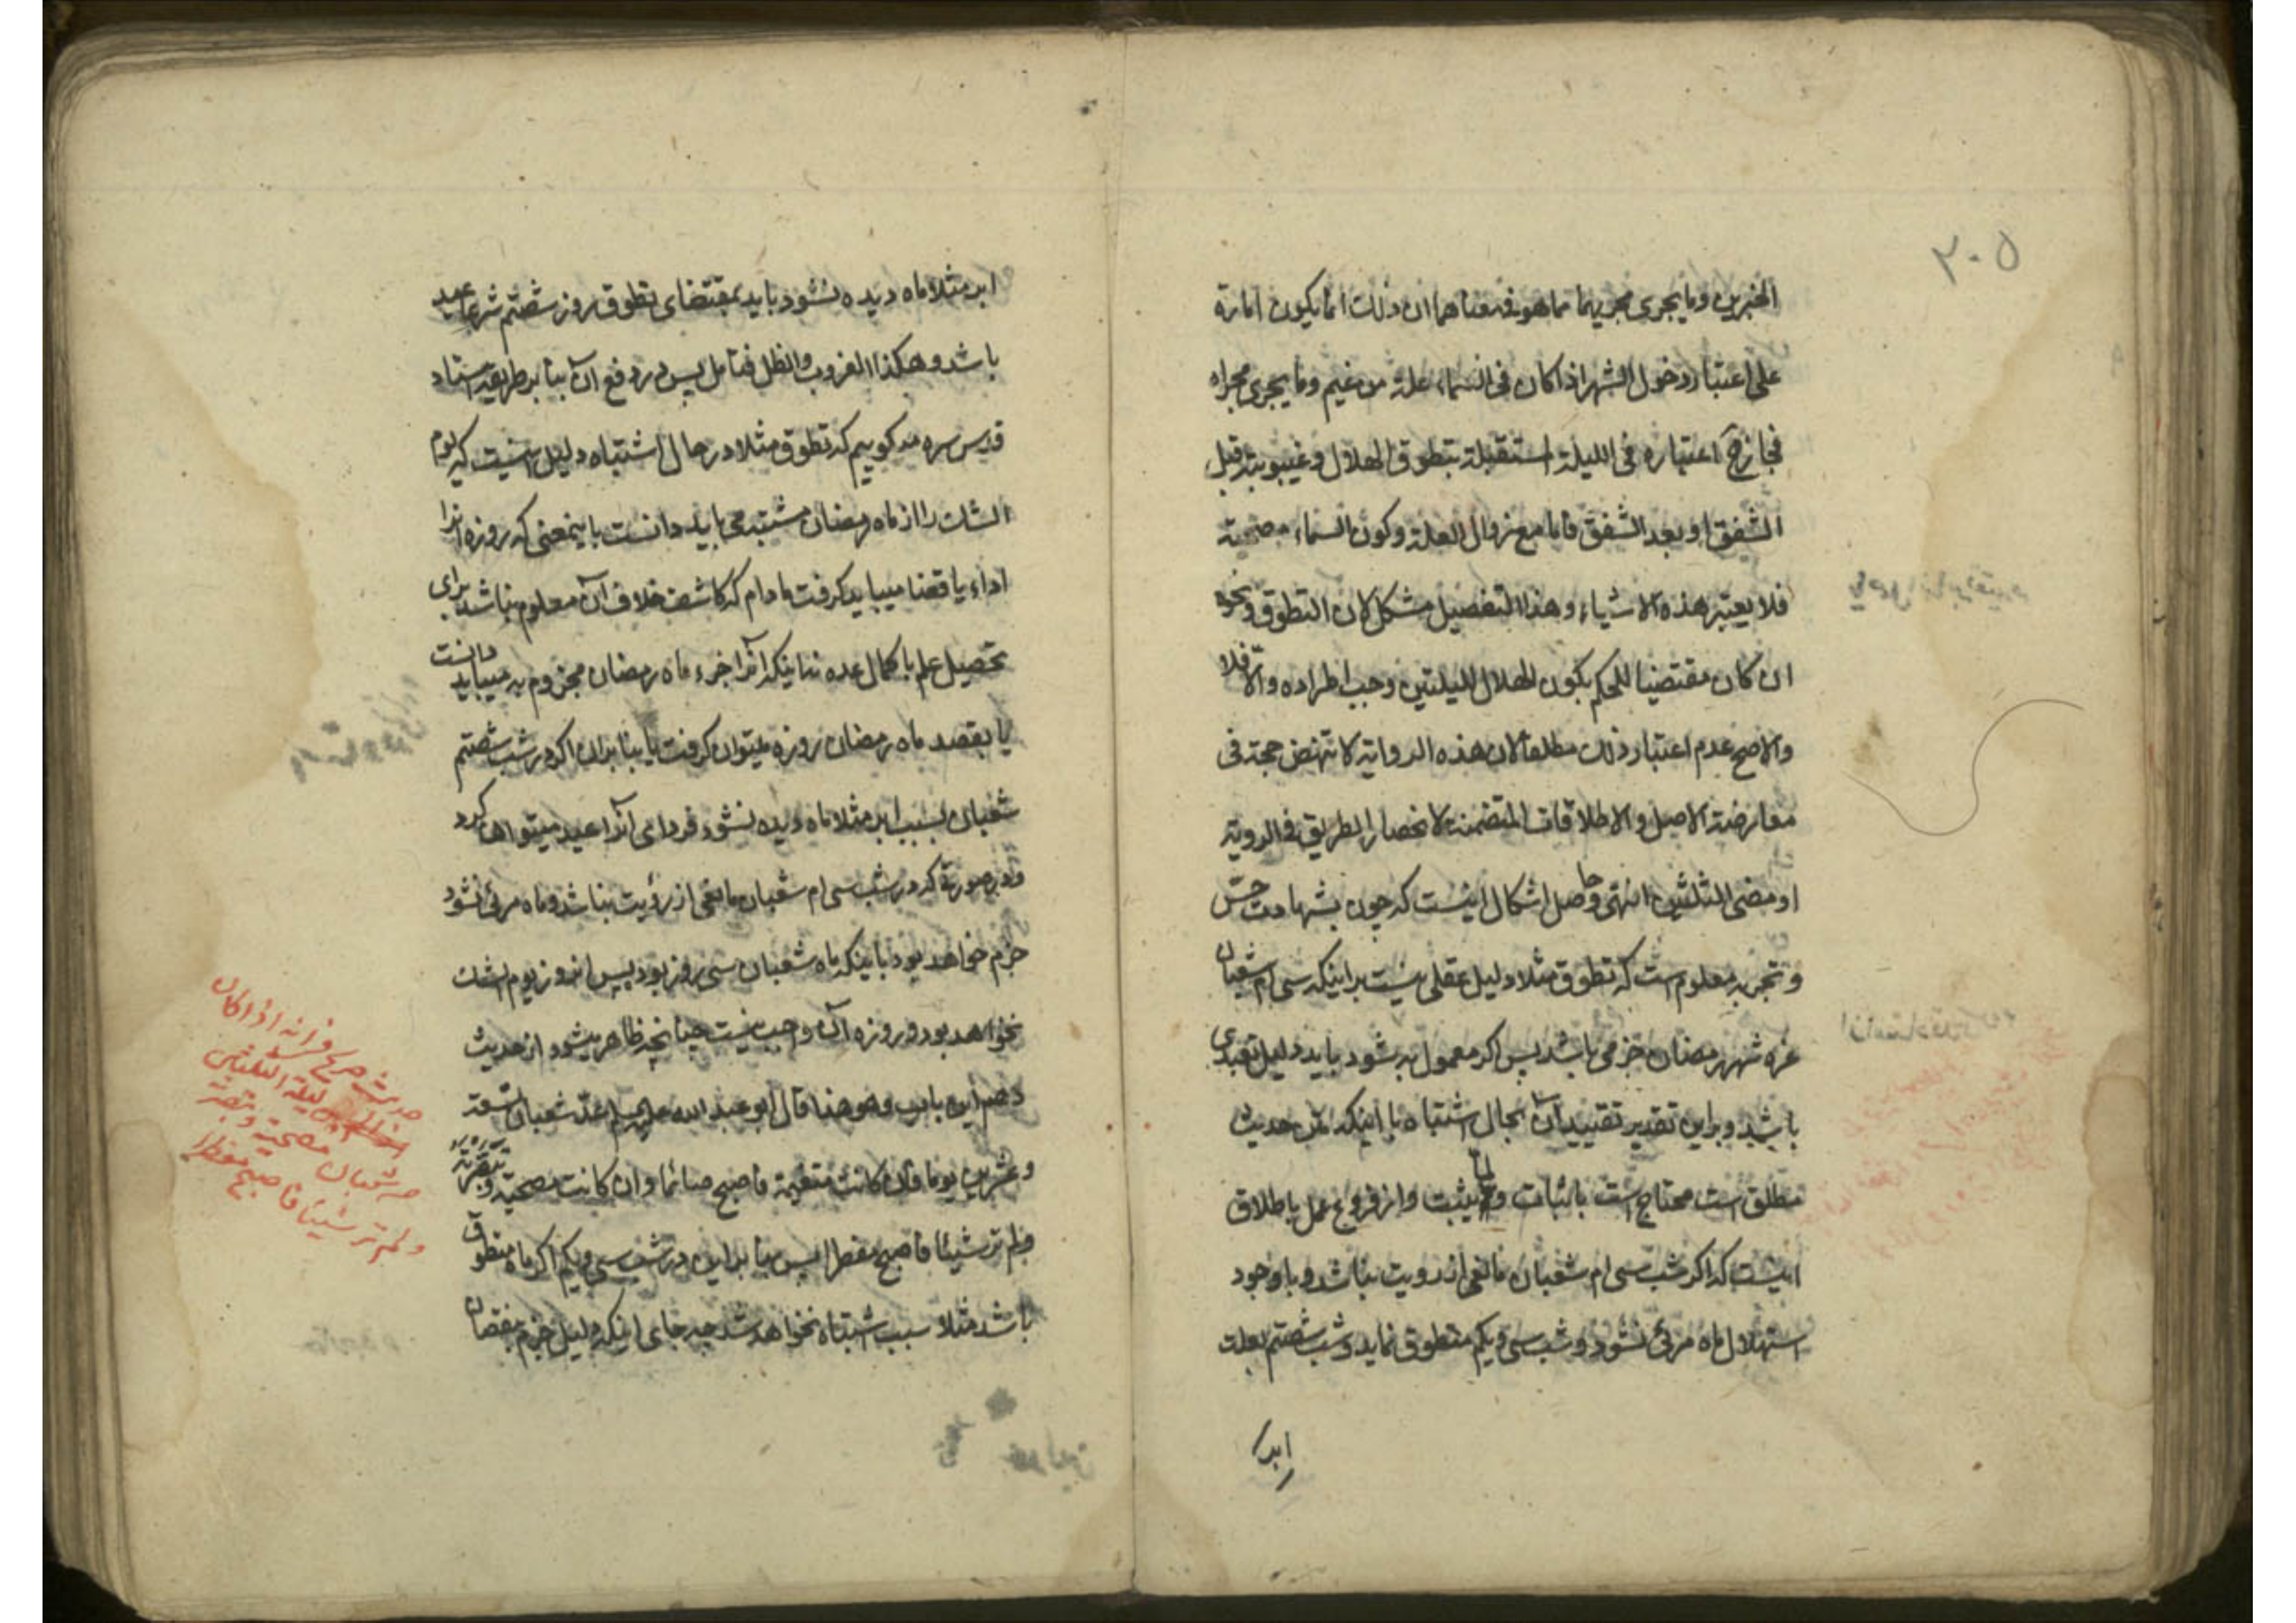 ۲۰۵
الخبرين وما يجرى مجريهما مما هو فى معناهما ان ذلك انما يكون امارة
على اعتبار دخول الشهر اذا كان فى السماء علة من غيم وما يجرى مجراه
فجاز ح اعتباره فى الليلة المستقبلة بتطوق الهلال وغيبوبته قبل
الشفق او بعد الشفق فاما مع زوال العلة وكون السماء مصحية
فلا يعتبر هذه الاشياء وهذا التفصيل مشكل لان التطوق ونحوه
ان كان مقتضيا للحكم بكون الهلال لليلتين وجب اطراده والا فلا
والاصح عدم اعتبار ذلك مطلقا لان هذه الرواية لا تنهض حجة فى
معارضة الاصل والاطلاقات المتضمنة لانحصار الطريق فى الروية
او مضى الثلثين انتهى وحاصل اشكال اينست كه چون بشهادت حس
و تجربه معلوم است كه تطوق مثلا دليل عقلى نيست بر اينكه سى ام شعبان
غره شهر رمضان جزمى باشد پس اكر معمول به شود بايد دليل تعبدى
باشد و براين تقدير تقييد آن بحال اشتباه با اينكه متن حديث
مطلق است محتاج است باثبات ولما يثبت و از فروع عمل باطلاق
اينست كه اكر شب سى ام شعبان مانعى از رويت نباشد و با وجود
استهلال ماه مرئى نشود و شب سى و يكم متطوق نمايد و شب شصتم بعلت
ابر
ابر مثلا ماه ديده نشود بايد بمقتضاى تطوق روز شصتم شرعا عيد
باشد و هكذا الغروب والظل فتامل پس در دفع آن بنا بر طريقه استاد
قدس سره مى كوييم كه تطوق مثلا در حال اشتباه دليل اينست كه يوم
الشك را از ماه رمضان مشتبه مى بايد دانست باينمعنى كه روزه آنرا
اداء يا قضا ميبايد كرفت مادام كه كاشف خلاف آن معلوم نباشد براى
تحصيل علم باكمال عده نه اينكه آنرا جزء ماه رمضان مجزوم به ميبايد دانست
يا بقصد ماه رمضان روزه ميتوان كرفت يا بنا بران اكر در شب شصتم
شعبان بسبب ابر مثلا ماه ديده نشود فرداى آنرا عيد ميتوان كرد
و در صورتى كه در شب سى ام شعبان مانعى از رؤيت نباشد و ماه مرئى نشود
جزم خواهد بود باينكه ماه شعبان سى روز بود پس آنروز يوم الشك
نخواهد بود و روزه آن واجب نيست چنانچه ظاهر ميشود از حديث
دهم اين باب و هو هذا قال ابو عبد الله عليه السلام عد شعبان تسعة
وعشرين يوما فان كانت متغيمة فاصبح صائما وان كانت مصحية وتبصرته
ولم تر شيئا فاصبح مفطرا پس بنا براين در شب سى و يكم اكر ماه متطوق
باشد مثلا سبب اشتباه نخواهد شد چه جاى اينكه دليل جزم بنقصان
ليلة الثلثين
من شعبان مصحية وتبصرته
ولم تر شيئا فاصبح مفطرا